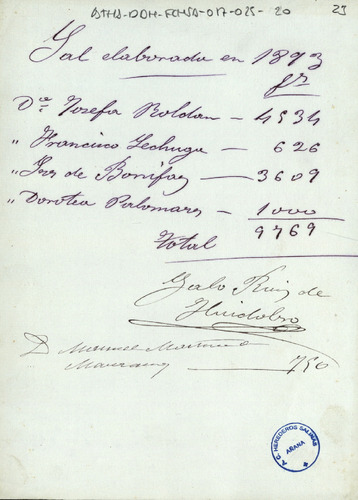 ATHA-DDH-FCHSA-017-025-20
23
Sal elaborada en 1893
fs
Dª Josefa Roldan — 4534
" Francisco Lechuga — 626
" Jos de Bonifaz — 3609
" Dorotea Palomares — 1000
Total 9769
Galo Ruiz de
Huidobro
D Manuel
750
A.C. HEREDEROS SALINAS
AÑANA